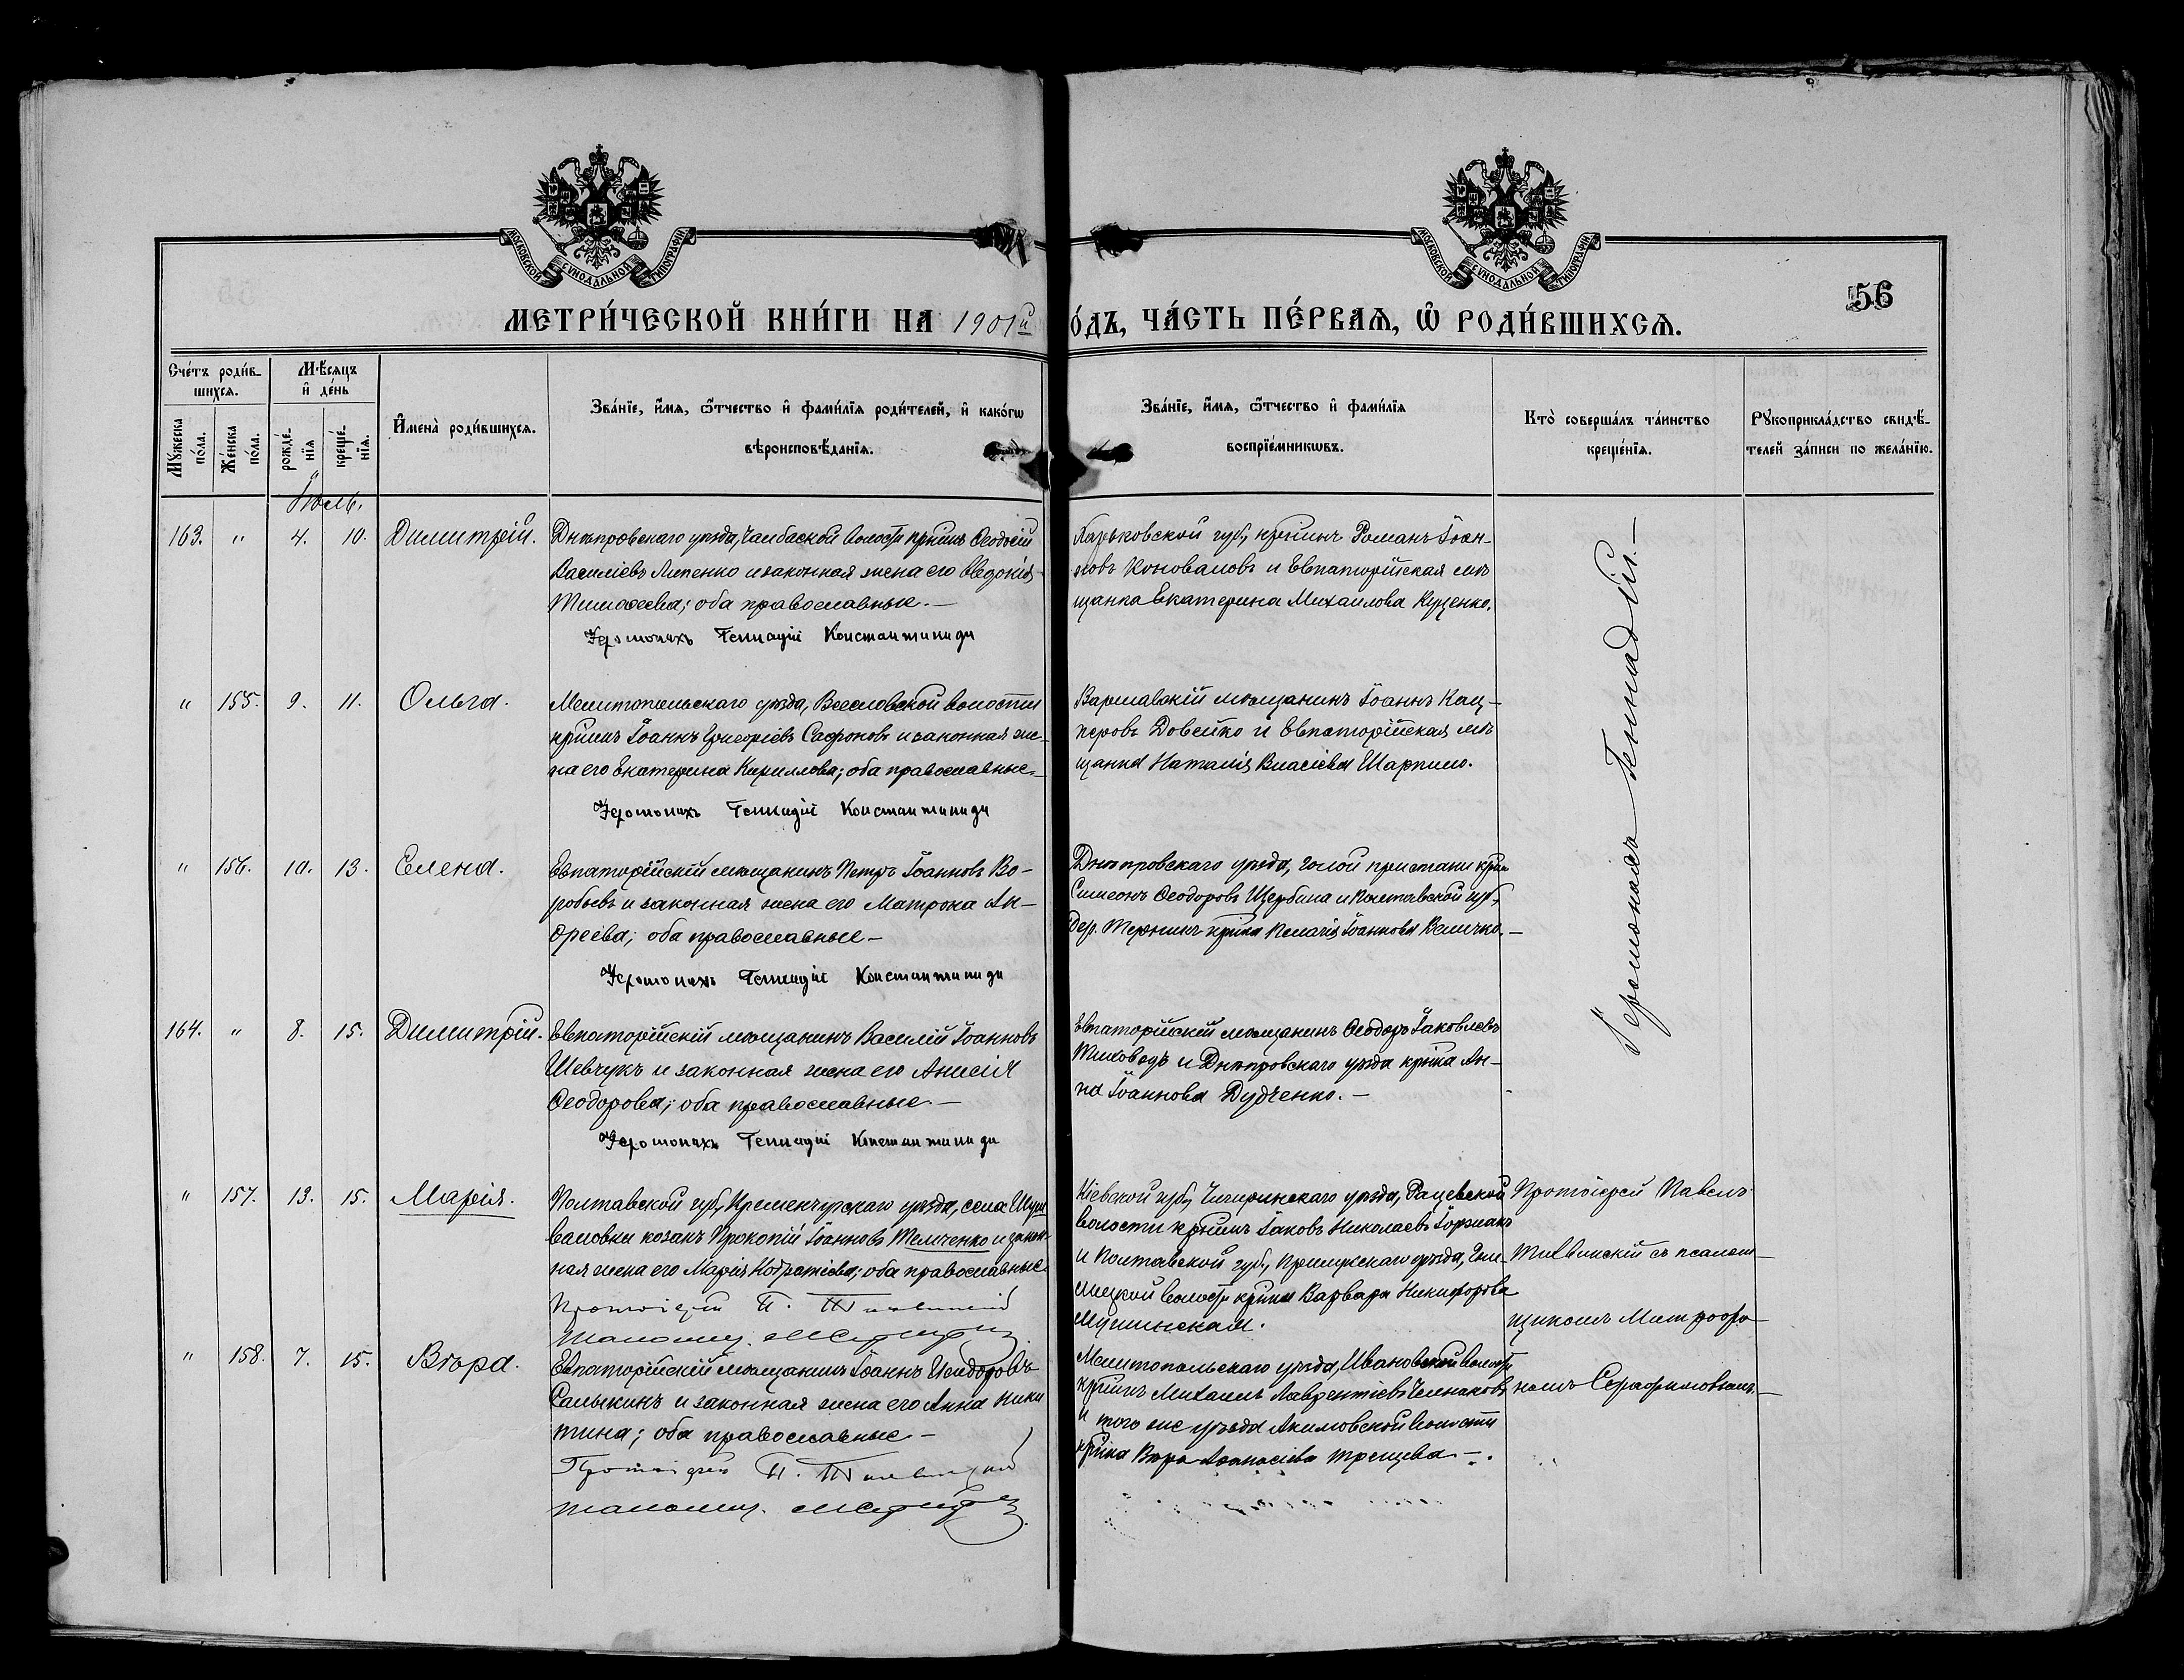 МОСКОВСКОЙ СУНОДАЛЬНОЙ ТИПОГРАФІИ
МОСКОВСКОЙ СУНОДАЛЬНОЙ ТИПОГРАФІИ
56
МЕТРИ́ЧЕСКОЙ КНИ́ГИ НА 1901й
о́дъ, ЧА́СТЬ ПЕ́РВАѦ, Ѡ РОДИ́ВШИХСѦ.
Сче́тъ роди́в-
шихсѧ.
Мꙋжеска
по́ла.
Же́нска
по́ла.
Мѣ́сѧцъ
и҆ де́нь
рожде́-
нїѧ
креще́-
нїѧ.
И҆мена̀ роди́вшихсѧ.
Зва́нїе, и҆́мѧ, ѻ҆́тчество и҆ фами́лїѧ роди́телей, и҆ како́гѡ
вѣроисповѣ́данїѧ.
Зва́нїе, и҆́мѧ, ѻ҆́тчество и҆ фами́лїѧ
воспрїе́мникѡвъ.
Кто̀ соверша́лъ та́инство
креще́нїѧ.
Рꙋкоприкла́дство свидѣ́-
телей за́писи по жела́нїю.
Іюль.
163. " 4. 10. Димитрій.
Днѣпровскаго уѣзда, Чалбаской волости крнинъ Ѳеодосій
Василіевъ Липенко и законная жена его Евдокія
Тимоѳеева; оба православные.—
Іеромонахъ Геннадій Константиниди
Харьковской губ, крнинъ Романъ Іоан-
новъ Коноваловъ и Евпаторійская мѣ
щанка Екатерина Михаилова Куценко.
Іеромонахъ Геннадій.—
" 155. 9. 11. Ольга.
Мелитопольскаго уѣзда, Веселовской волости
крнинъ Іоаннъ Григоріевъ Сафоновъ и законная же-
на его Екатерина Кириллова; оба православные.—
Іеромонахъ Геннадій Константиниди
Варшавскій мѣщанинъ Іоаннъ Кац-
перовъ Довейко и Евпаторійская мѣ
щанка Наталія Власіева Шарпило.
" 156. 10. 13. Елена.
Евпаторійскій мѣщанинъ Петръ Іоанновъ Во-
робьевъ и законная жена его Матрона Ан-
дреева; оба православные—
Іеромонахъ Геннадій Константиниди
Днѣпровскаго уѣзда, Голой пристани крнин
Симеонъ Ѳеодоровъ Щербина и Полтавской губ,
дер. крнка Пелагія Іоаннова Величко.—
164. " 8. 15. Димитрій.
Евпаторійскій мѣщанинъ Василій Іоанновъ
Шевчукъ и законная жена его Анисія
Ѳеодорова; оба православные.—
Іеромонахъ Геннадій Константиниди
Евпаторійскій мѣщанинъ Ѳеодоръ Іаковлевъ
Тиховодъ и Днѣпровскаго уѣзда крнка Ан-
на Іоаннова Дудченко.—
" 157. 13. 15. Марія.
Полтавской губ, Кременчугскаго уѣзда, села
козакъ Прокопій Іоанновъ Теличенко и закон-
ная жена его Марія Кодратіева; оба православные
Протоіерей П. Тихвинскій
Псаломщ.
Кіевской губ, Чигиринскаго уѣзда, Рацевской
волости крнинъ Іаковъ Николаевъ
и Полтавской губ, Прилукскаго уѣзда,
волости крнка Варвара Никифорова
Протоіерей Павелъ
Тихвинскій съ псалом—
щикомъ Митрофа—
номъ Серафимовымъ.—
" 158. 7. 15. Вѣра.
Евпаторійскій мѣщанинъ Іоаннъ Исидоровъ
Салыкинъ и законная жена его Анна Ники
тина; оба православные—
Протоіерей П. Тихвинскій
Псаломщ.
Мелитопольскаго уѣзда, Ивановской волости
крнинъ Михаилъ Лаврентіевъ Челнаковъ
и того же уѣзда Акимовской волости
крнка Вѣра Аѳанасіева Трещева—.